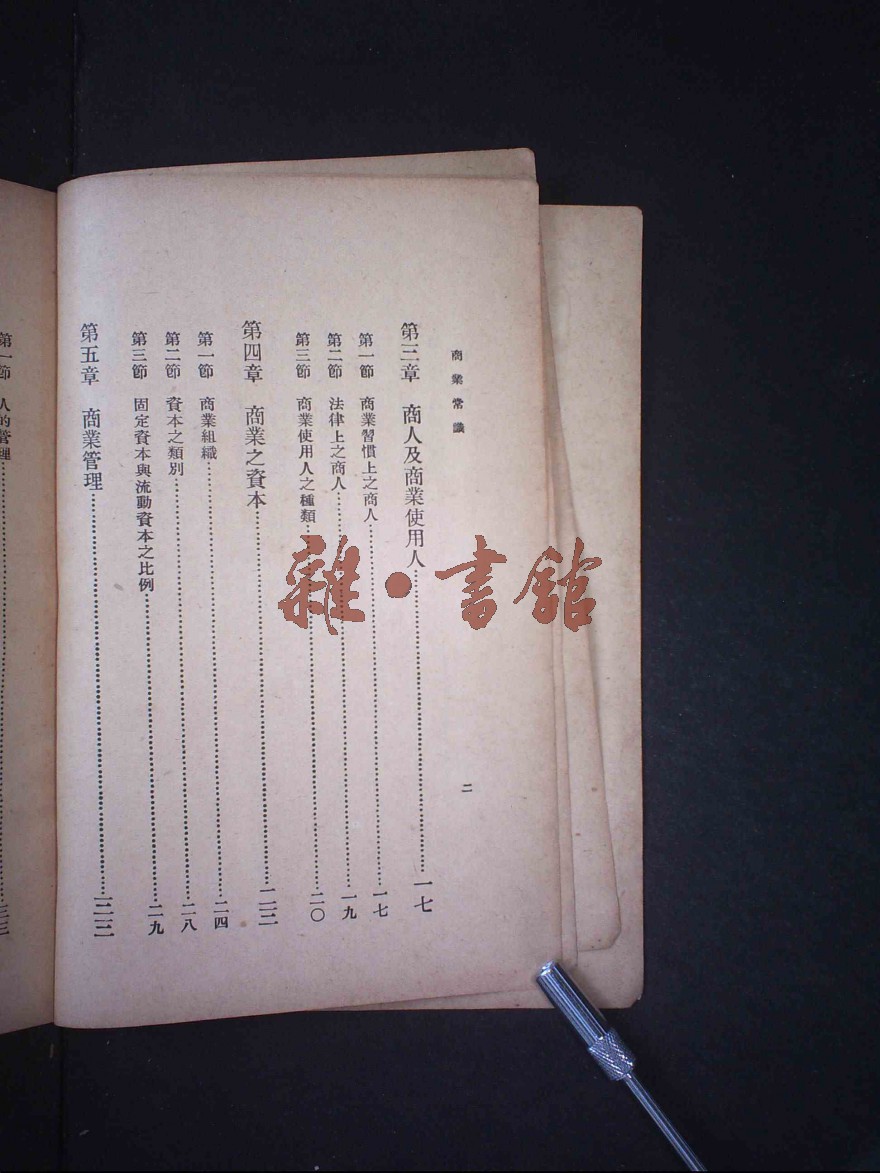 商業常識
二
第三章 商人及商業使用人……一七
第一節 商業習慣上之商人……一七
第二節 法律上之商人……一九
第三節 商業使用人之種類……二〇
第四章 商業之資本……二三
第一節 商業組織……二四
第二節 資本之類別……二八
第三節 固定資本與流動資本之比例……二九
第五章 商業管理……三三
第一節 人的管理……三三
雜·書館